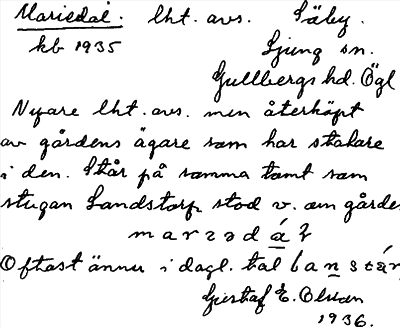 Mariedal. lht. avs. Säby.
kb 1935 Ljung sn.
Gullbergs hd. Ögl
Nyare lht. avs. men återköpt
av gårdens ägare som har statare
i den. Står på samma tomt som
stugan Landstorp stod v. om gården
Oftast ännu i dagl. tal
Gustaf E. Olsson
1936.